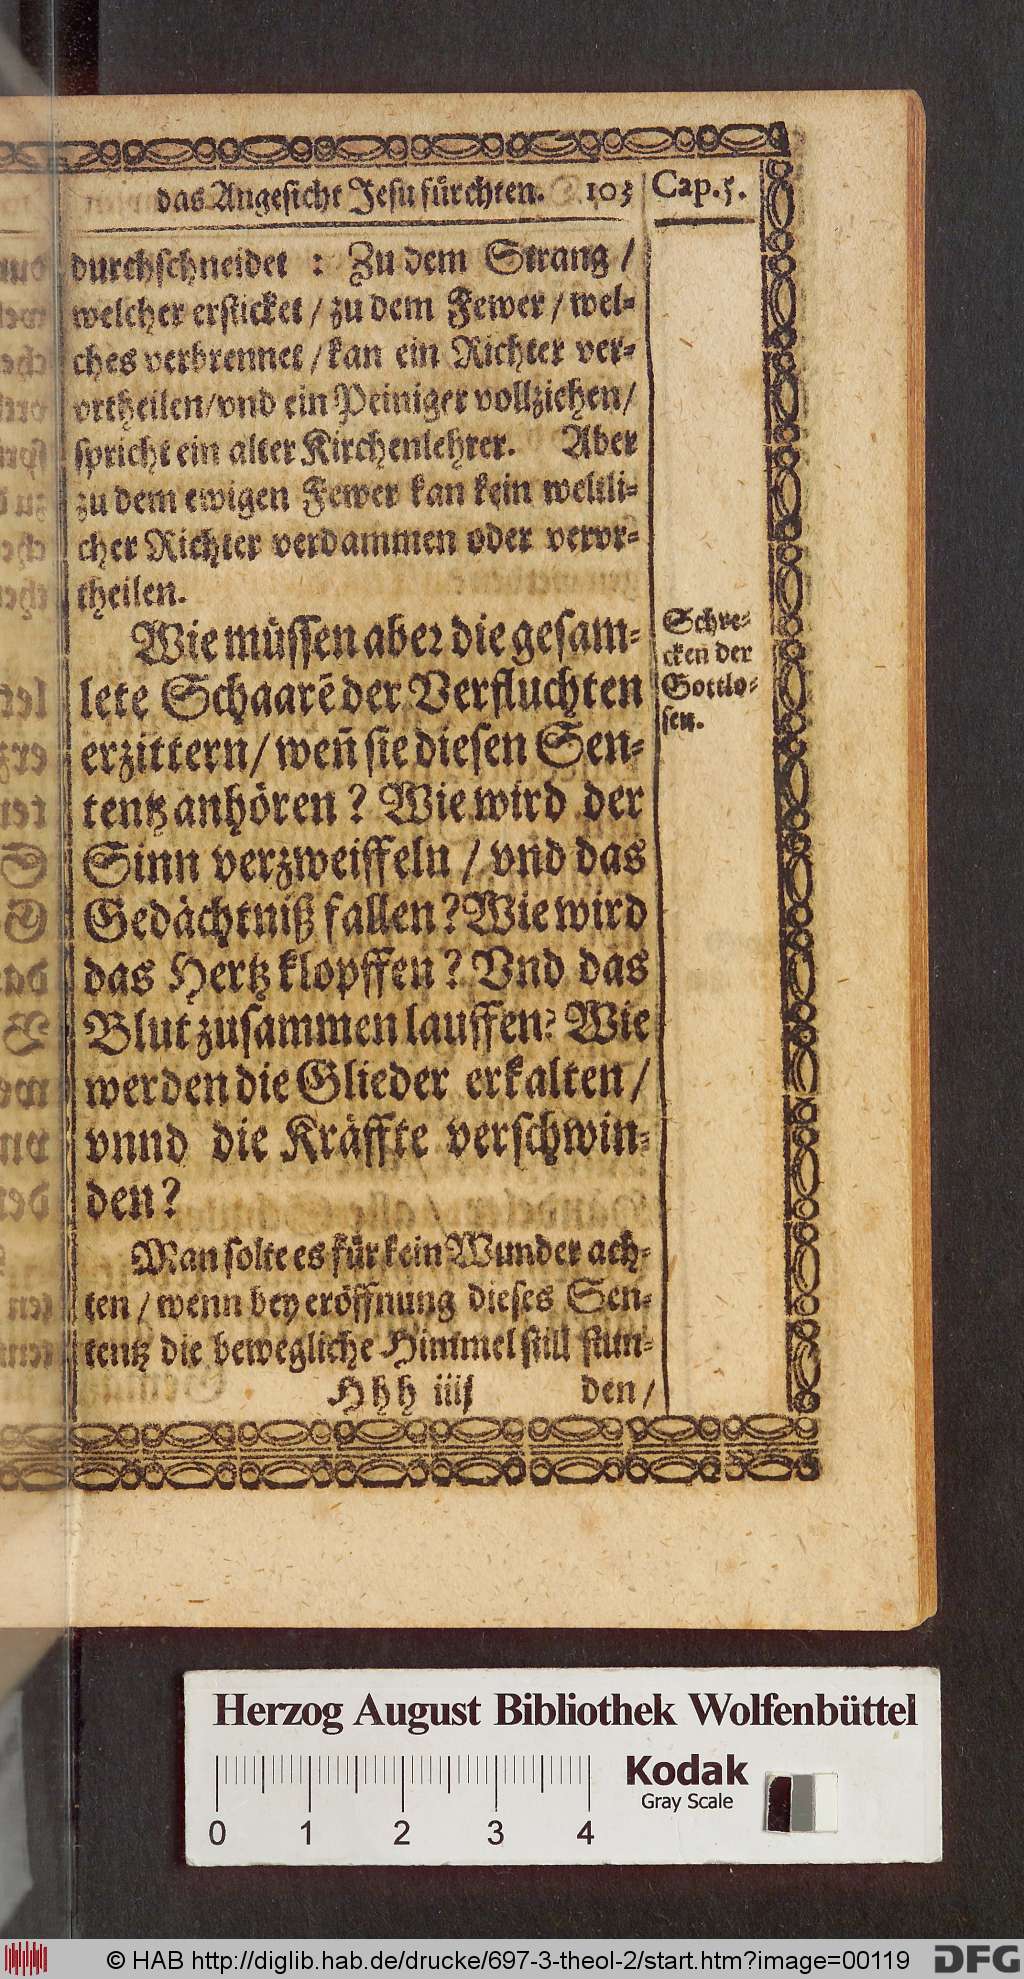 das Angesicht Jesu fürchten. 103 Cap. 5.
durchschneidet : Zu dem Strang /
welcher ersticket / zu dem Fewer / wel-
ches verbrennet / kan ein Richter ver-
vrtheilen/vnd ein Peiniger vollziehen/
spricht ein alter Kirchenlehrer. Aber
zu dem ewigen Fewer kan kein weltli-
cher Richter verdammen oder vervr-
theilen.
Wie müssen aber die gesam-
lete Schaarē der Verfluchten
erzittern / weñ sie diesen Sen-
tentz anhören ? Wie wird der
Sinn verzweiffeln / vnd das
Gedächtniß fallen ? Wie wird
das Hertz klopffen ? Vnd das
Blut zusammen lauffen? Wie
werden die Glieder erkalten /
vnnd die Kräffte verschwin-
den ?
Schre-
cken der
Gottlo-
sen.
Man solte es für kein Wunder ach-
ten / wenn bey eröffnung dieses Sen-
tentz die bewegliche Himmel still stun-
Hhh iiij den /
Herzog August Bibliothek Wolfenbüttel
Kodak
Gray Scale
0 1 2 3 4
© HAB http://diglib.hab.de/drucke/697-3-theol-2/start.htm?image=00119 DFG